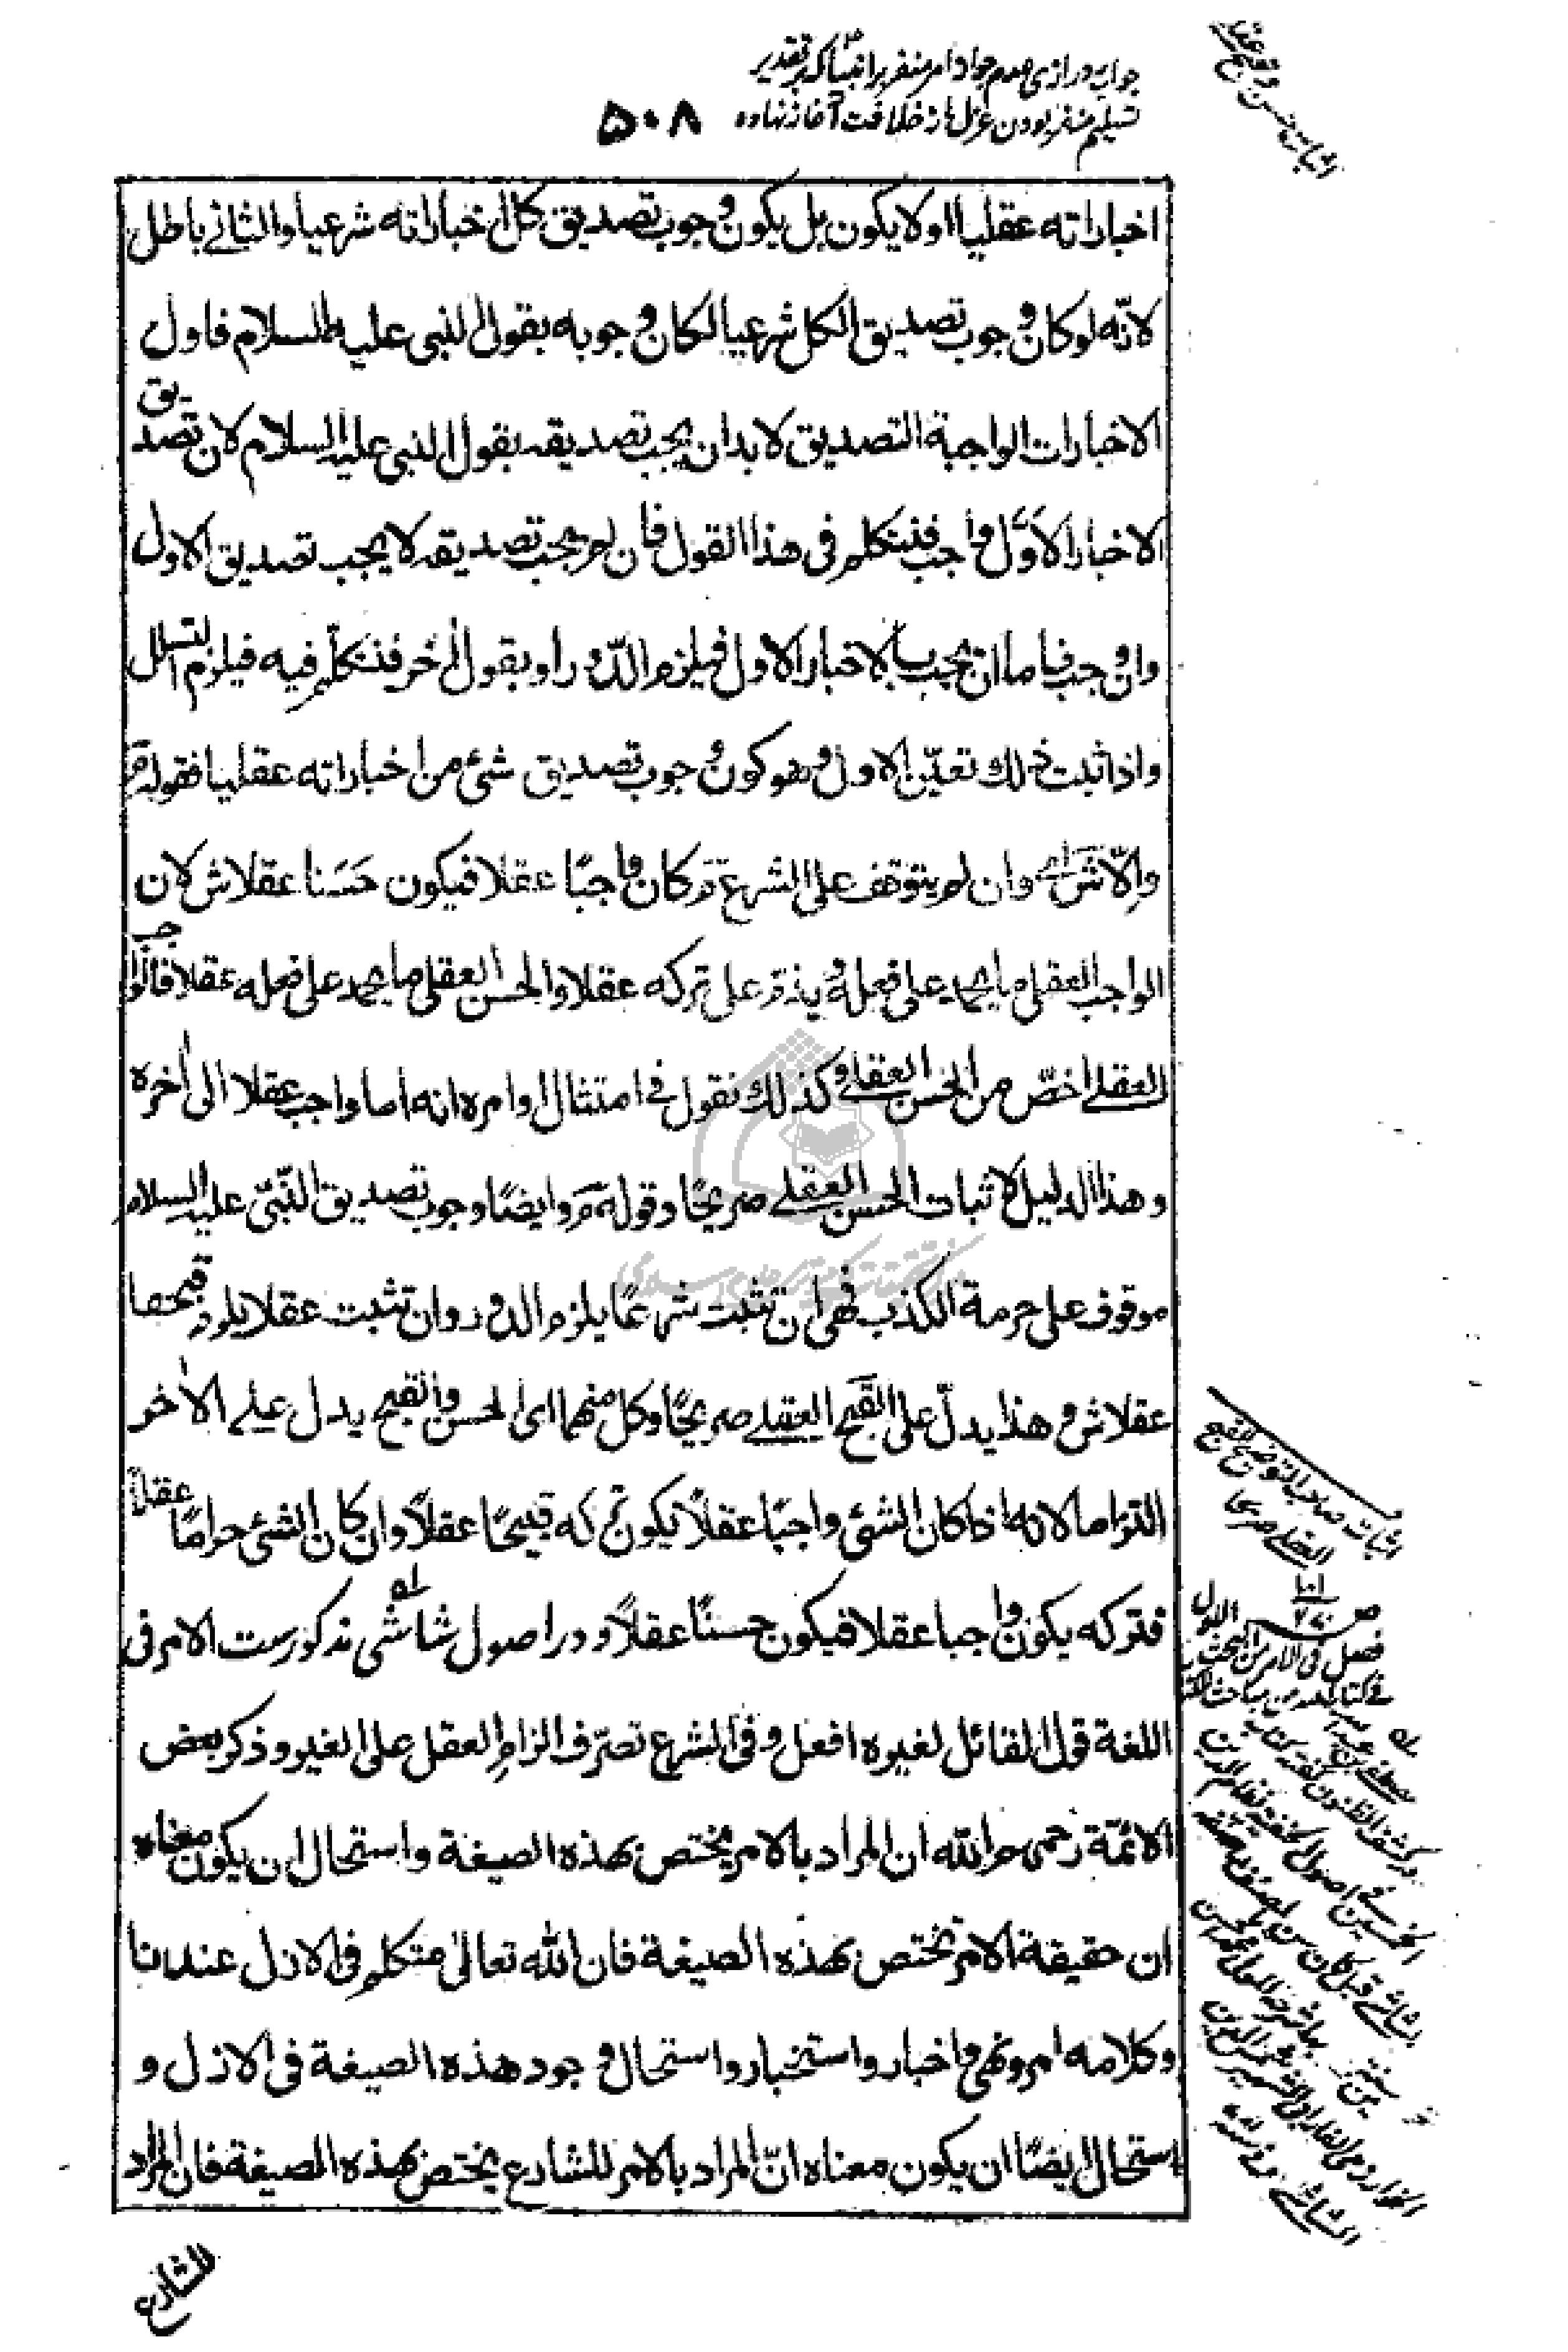 جواب دراز می عدم جواز امر منفر بر انبیا که بر تقدیر
تسلیم منفر بودن عزل از خلافت آغاز نهاده
۵۰۸
اثبات حسن و قبح عقلی
اخباراته عقليا اولا يكون بل يكون وجوب تصديق كل اخباراته شرعيا والثاني باطل
لانّه لو كان وجوب تصديق الكل شرعيا لكان وجوبه بقول النبي عليه السلام فاول
الاخبارات الواجبة التصديق لا بد ان يجب تصديقه بقول النبي عليه السلام لان تصديق
الاخبار الاوّل واجب فنتكلم في هذا القول فان لم يجب تصديقه لا يجب تصديق الاول
وان وجب فاما ان يجب بالاخبار الاول فيلزم الدّور او بقول اٰخر فنتكلّم فيه فيلزم التسلسل
واذا ثبت ذلك تعيّن الاول وهو كون وجوب تصديق شئ من اخباراته عقليا فقوله م
والّا ش اے وان لم يتوقف على الشرع م كان واجبًا عقلا فيكون حَسَنا عقلا ش لان
الواجب العقلي ما يحمد على فعله ويذم على تركه عقلا والحسن العقلي ما يحمد على فعله عقلا فالواجب
العقلے اخصّ من الحسن العقلے وكذلك نقول في امتثال اوامره انه اما واجب عقلا الى اٰخره
وهذا الدليل لاثبات الحسن العقلے صريحًا وقوله م وايضًا وجوب تصديق النّبيّ عليه السلام
موقوف على حرمة الكذب فهي ان تثبت شرعًا يلزم الدور وان تثبت عقلا يلزم قبحها
عقلا ش وهذا يدلّ على القبح العقلے صريحًا وكل منهما اى الحسن والقبح يدل علے الاٰخر
التزاما لانه اذا كان الشئ واجبًا عقلًا يكون تركه قبيحًا عقلًا وان كان الشئ حرامًا عقلًا
فتركه يكون واجبا عقلا فيكون حسنًا عقلًا و در اصول شاشى مذكورست الامر فى
اللغة قول القائل لغيره افعل وفي الشرع تصرّف الزامِ العقل على الغير وذكر بعض
الائمّة رحمهم الله ان المراد بالامر يختص بهذه الصيغة واستحال ان يكون معناه
ان حقيقة الامر تختص بهذه الصيغة فان الله تعالىٰ متكلم فى الازل عندنا
وكلامه امر ونهى واخبار واستخبار واستحال وجود هذه الصيغة فى الازل و
استحال ايضًا ان يكون معناه انّ المراد بالامر للشارع يختص بهذه الصيغة فان المراد
للشارع
اثبات صاحب التوضيح القبح
العقلے صريحا
فصل فى الامر من البحث الاول
فے كتاب الله من مباحث الكتاب